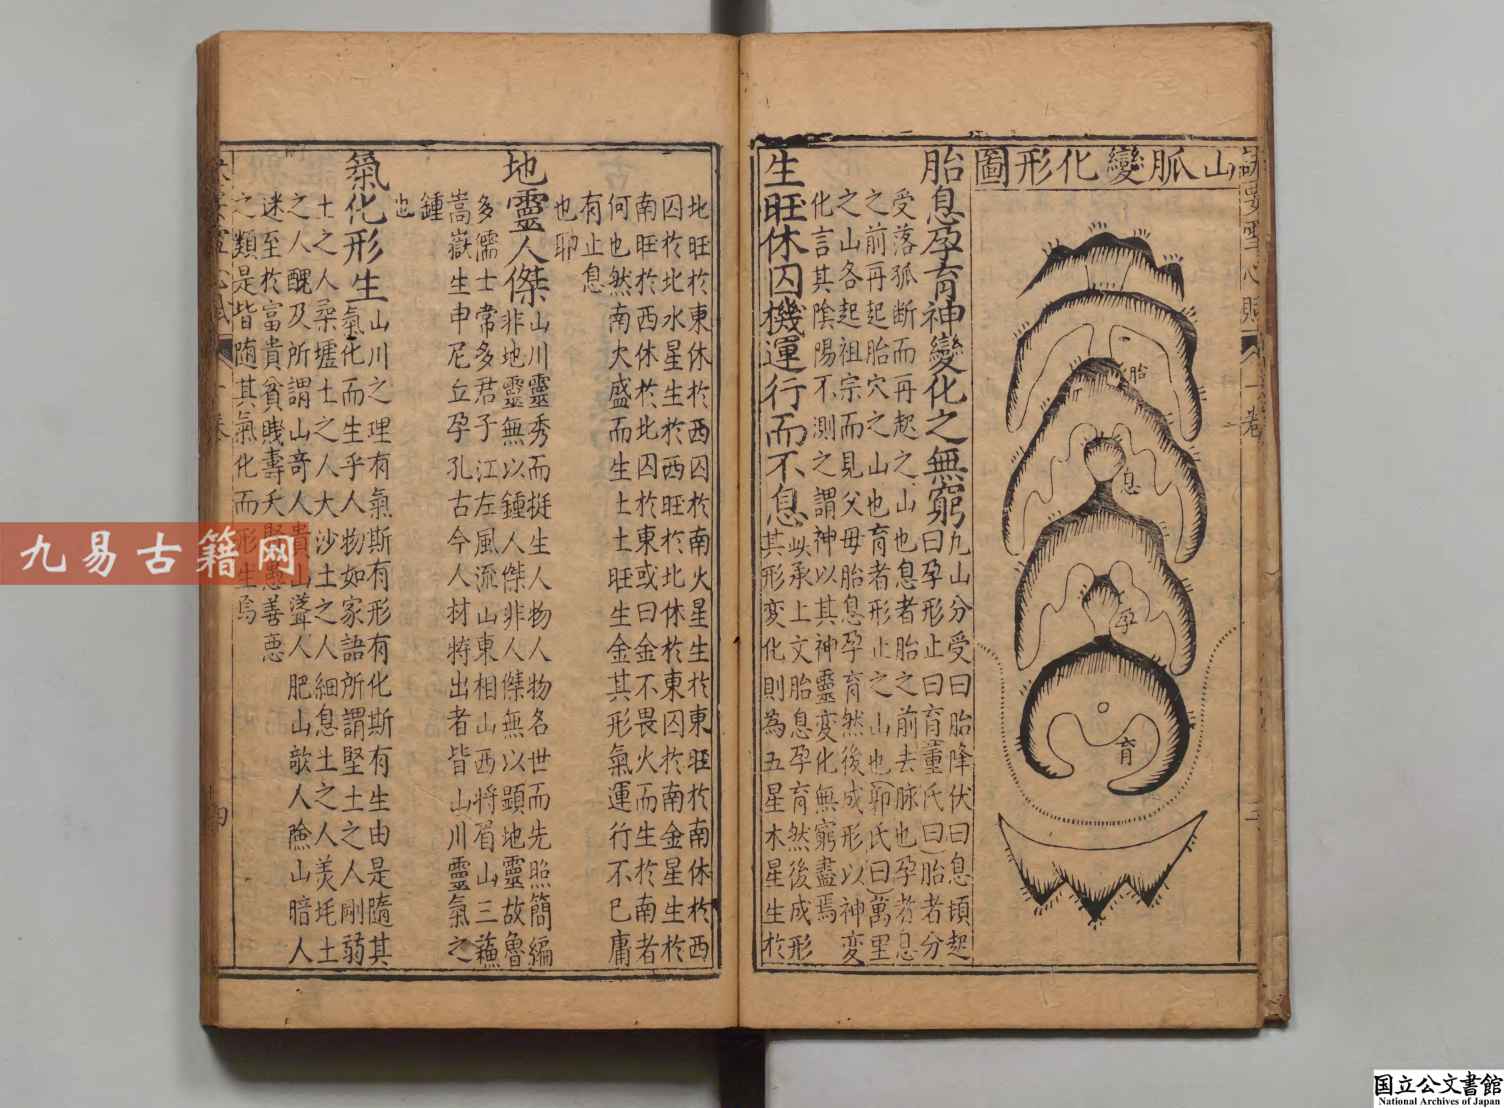 山脈變化形圖
胎
息
孕
育
胎息孕育神變化之無窮
凡山分受曰胎降伏曰息頃起
曰孕形止曰育董氏曰胎者分
受落孤斷而再起之山也息者胎之前去脉也孕者息
之前再起胎穴之山也育者形止之山也郭氏曰萬里
之山各起祖宗而見父母胎息孕育然後成形以神変
化言其陰陽不測之謂神以其神靈変化無窮盡焉
生旺休囚機運行而不息
此承上文胎息孕育然後成形
其形変化則為五星木星生於
一卷
三
北旺於東休於西囚於南火星生於東旺於南休於西
囚於北水星生於西旺於北休於東囚於南金星生於
南旺於西休於北囚於東或曰金不畏火而生於南者
何也然南火盛而生土土旺生金其形氣運行不已庸
有止息
也耶
地靈人傑
山川靈秀而挺生人物人物名世而先照簡編
非地靈無以鍾人傑非人傑無以顕地靈故魯
多儒士常多君子江左風流山東相山西將眉山三蘓
嵩嶽生申尼丘孕孔古今人材特出者皆山川靈氣之
鍾
也
氣化形生
山川之理有氣斯有形有化斯有生由是隨其
氣化而生乎人物如家語所謂堅土之人剛弱
土之人柔壚土之人大沙土之人細息土之人美耗土
之人醜及所謂山竒人貴山人肥山歌人險山暗人
迷至於富貴貧賤壽夭賢愚善惡
之類是皆随其氣化而形生焉
九易古籍网
国立公文書館
National Archives of Japan